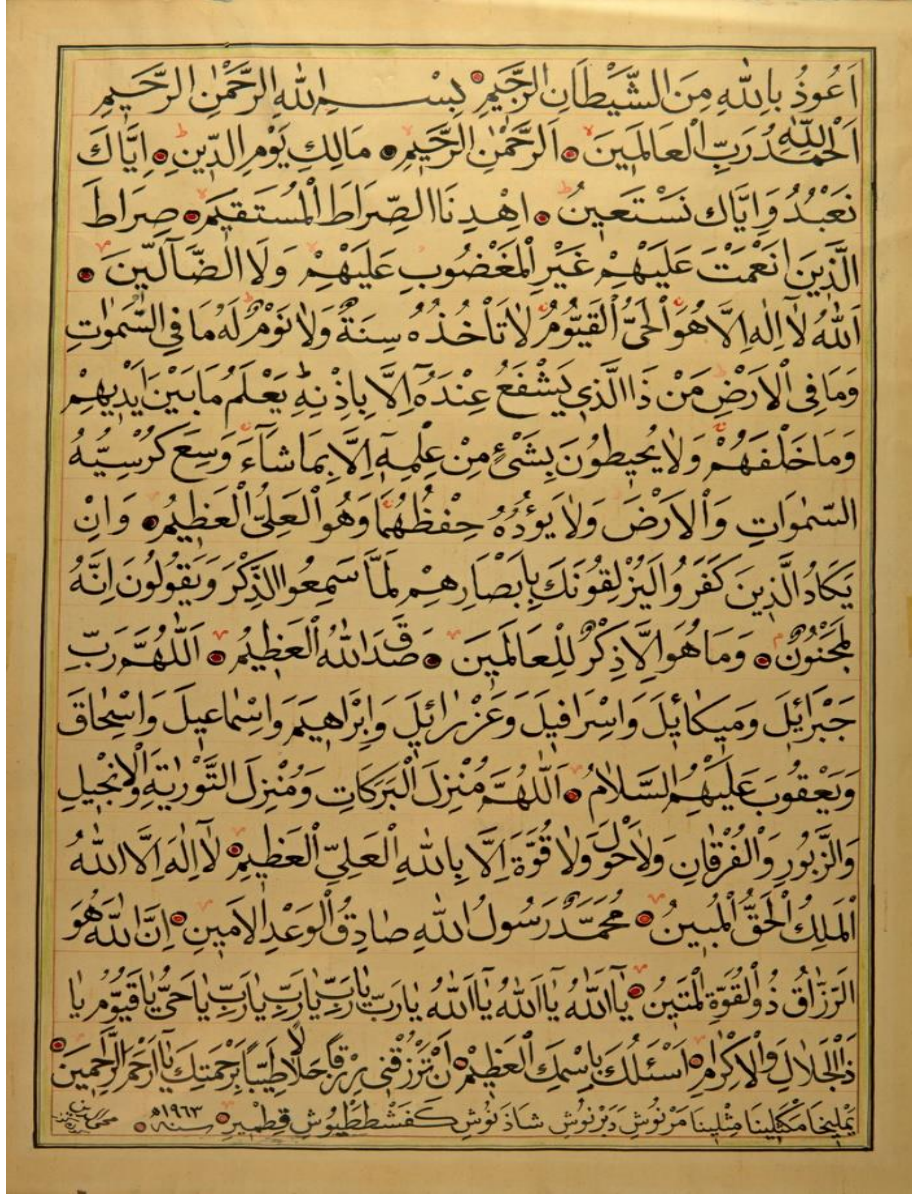 اَعُوذُ بِاللهِ مِنَ الشَّيْطَانِ الرَّجِيمِ بِسْــــمِ اللهِ الرَّحْمٰنِ الرَّحِيمِ
اَلْحَمْدُ لِلّٰهِ رَبِّ الْعَالَمِينَ اَلرَّحْمٰنِ الرَّحِيمِ مَالِكِ يَوْمِ الدِّينِ اِيَّاكَ
نَعْبُدُ وَاِيَّاكَ نَسْتَعِينُ اِهْدِنَا الصِّرَاطَ الْمُسْتَقِيمَ صِرَاطَ
الَّذِينَ اَنْعَمْتَ عَلَيْهِمْ غَيْرِ الْمَغْضُوبِ عَلَيْهِمْ وَلَا الضَّآلِّينَ
اَللهُ لَآ اِلٰهَ اِلَّا هُوَ اَلْحَيُّ الْقَيُّومُ لَا تَأْخُذُهُ سِنَةٌ وَلَا نَوْمٌ لَهُ مَا فِي السَّمٰوٰتِ
وَمَا فِي الْاَرْضِ مَنْ ذَا الَّذِي يَشْفَعُ عِنْدَهُٓ اِلَّا بِاِذْنِهِ يَعْلَمُ مَا بَيْنَ اَيْدِيهِمْ
وَمَا خَلْفَهُمْ وَلَا يُحِيطُونَ بِشَيْءٍ مِنْ عِلْمِهِٓ اِلَّا بِمَا شَآءَ وَسِعَ كُرْسِيُّهُ
السَّمٰوَاتِ وَالْاَرْضَ وَلَا يَؤُدُهُ حِفْظُهُمَا وَهُوَ الْعَلِيُّ الْعَظِيمُ وَاِنْ
يَكَادُ الَّذِينَ كَفَرُوا لَيُزْلِقُونَكَ بِاَبْصَارِهِمْ لَمَّا سَمِعُوا الذِّكْرَ وَيَقُولُونَ اِنَّهُ
لَمَجْنُونٌ وَمَا هُوَ اِلَّا ذِكْرٌ لِلْعَالَمِينَ صَدَقَ اللهُ الْعَظِيمُ اَللّٰهُمَّ رَبِّ
جَبْرَائِلَ وَمِيكَائِلَ وَاِسْرَافِيلَ وَعَزْرَائِلَ وَاِبْرَاهِيمَ وَاِسْمَاعِيلَ وَاِسْحَاقَ
وَيَعْقُوبَ عَلَيْهِمُ السَّلَامُ اَللّٰهُمَّ مُنْزِلَ الْبَرَكَاتِ وَمُنْزِلَ التَّوْرٰيةِ وَالْاِنْجِيلِ
وَالزَّبُورِ وَالْفُرْقَانِ وَلَا حَوْلَ وَلَا قُوَّةَ اِلَّا بِاللهِ الْعَلِيِّ الْعَظِيمِ لَآ اِلٰهَ اِلَّا اللهُ
الْمَلِكُ الْحَقُّ الْمُبِينُ مُحَمَّدٌ رَسُولُ اللهِ صَادِقُ الْوَعْدِ الْاَمِينِ اِنَّ اللهَ هُوَ
الرَّزَّاقُ ذُو الْقُوَّةِ الْمَتِينُ يَآ اَللهُ يَآ اَللهُ يَآ اَللهُ يَارَبِّ يَارَبِّ يَارَبِّ يَارَبِّ يَاحَيُّ يَاقَيُّومُ يَا
ذَا الْجَلَالِ وَالْاِكْرَامِ اَسْئَلُكَ بِاسْمِكَ الْعَظِيمِ اَنْ تَرْزُقَنِي رِزْقًا حَلَالًا طَيِّبًا بِرَحْمَتِكَ يَآ اَرْحَمَ الرَّاحِمِينَ
يَمْلِيخَا مَكْثَلِينَا مِثْلِينَا مَرْنُوشِ دَبَرْنُوشِ شَاذَنُوشِ كَفَشْطَطَيُوشِ قِطْمِيرِ سنه ١٩٦٣